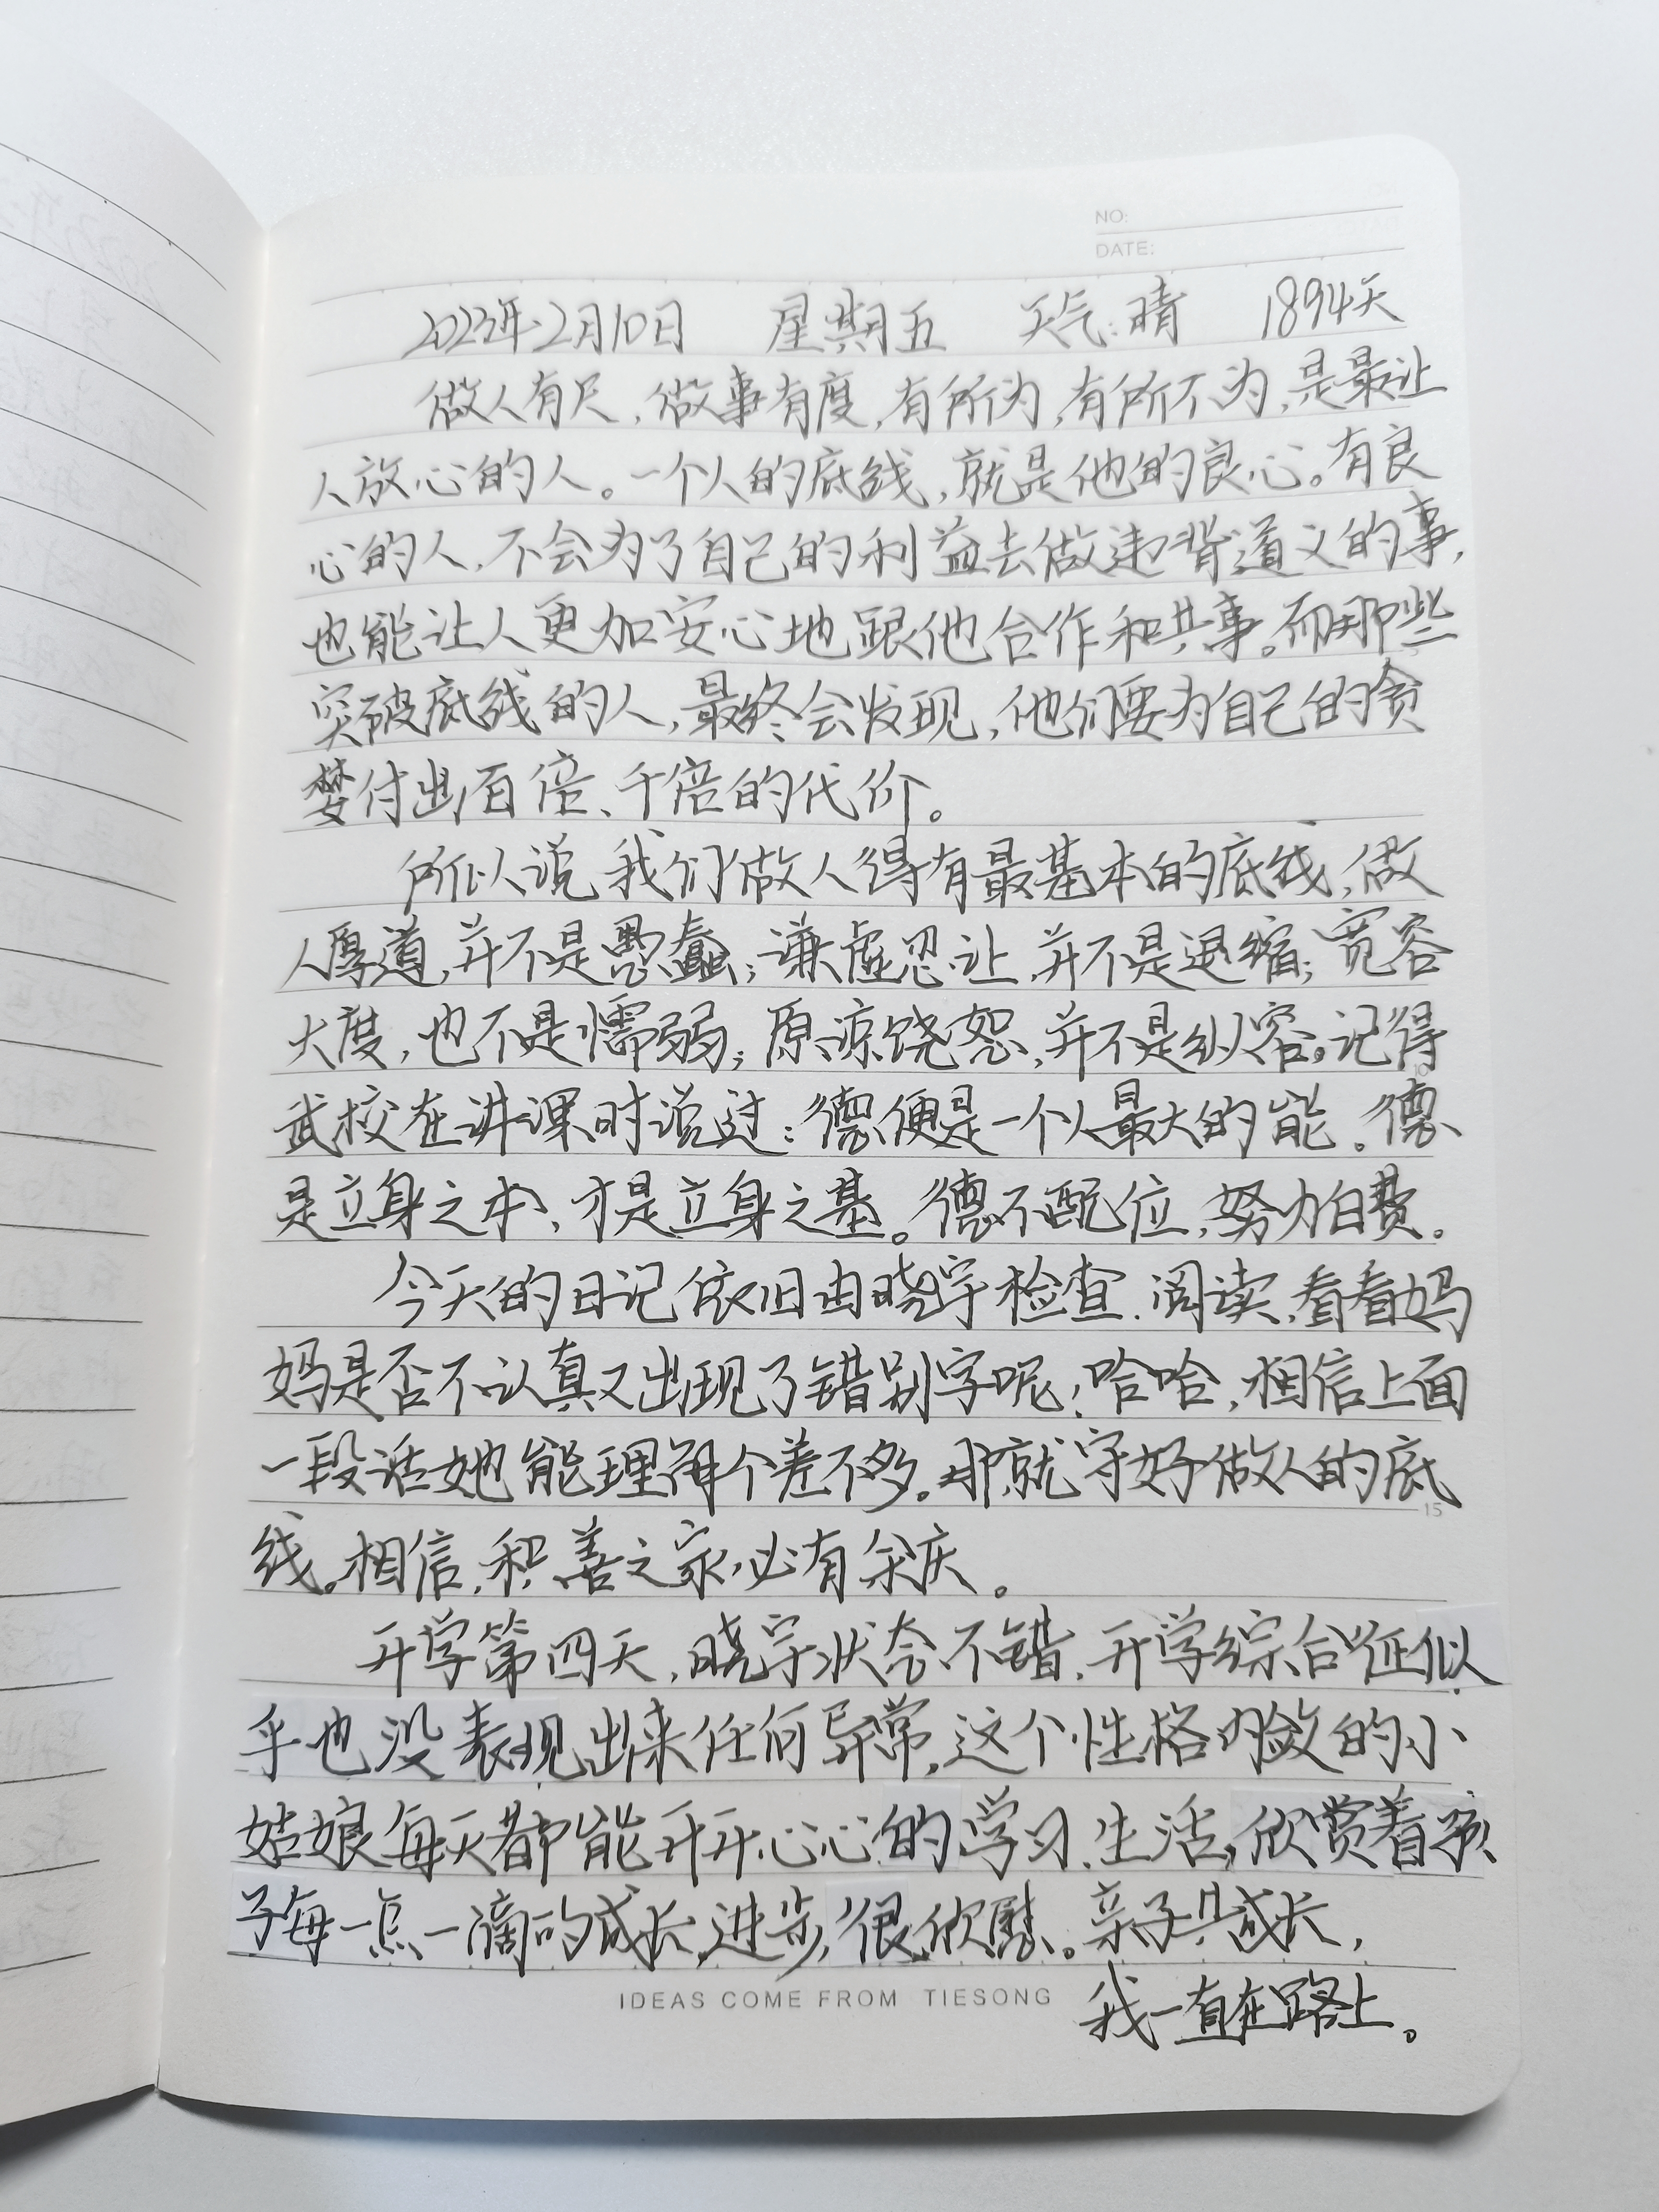 NO:
DATE:
2023年2月10日 星期五 天气:晴 1894天
做人有尺,做事有度,有所为,有所不为,是最让
人放心的人。一个人的底线,就是他的良心。有良
心的人,不会为了自己的利益去做违背道义的事,
也能让人更加安心地跟他合作和共事。而那些
突破底线的人,最终会发现,他们要为自己的贪
婪付出百倍、千倍的代价。
所以说我们做人得有最基本的底线,做
人厚道,并不是愚蠢;谦虚忍让,并不是退缩;宽容
大度,也不是懦弱;原谅饶恕,并不是纵容。记得
武校在讲课时说过:德便是一个人最大的能。德
是立身之本,才是立身之基。德不配位,努力白费。
今天的日记依旧由晓宇检查、阅读,看看妈
妈是否不认真又出现了错别字呢,哈哈,相信上面
一段话她能理解个差不多。那就守好做人的底
线。相信,积善之家,必有余庆。
开学第四天,晓宇状态不错,开学综合征似
乎也没表现出来任何异常,这个性格内敛的小
姑娘每天都能开开心心的学习、生活,欣赏着孩
子每一点一滴的成长,进步,很欣慰。亲子共成长,
IDEAS COME FROM TIESONG
我一直在路上。
10
15